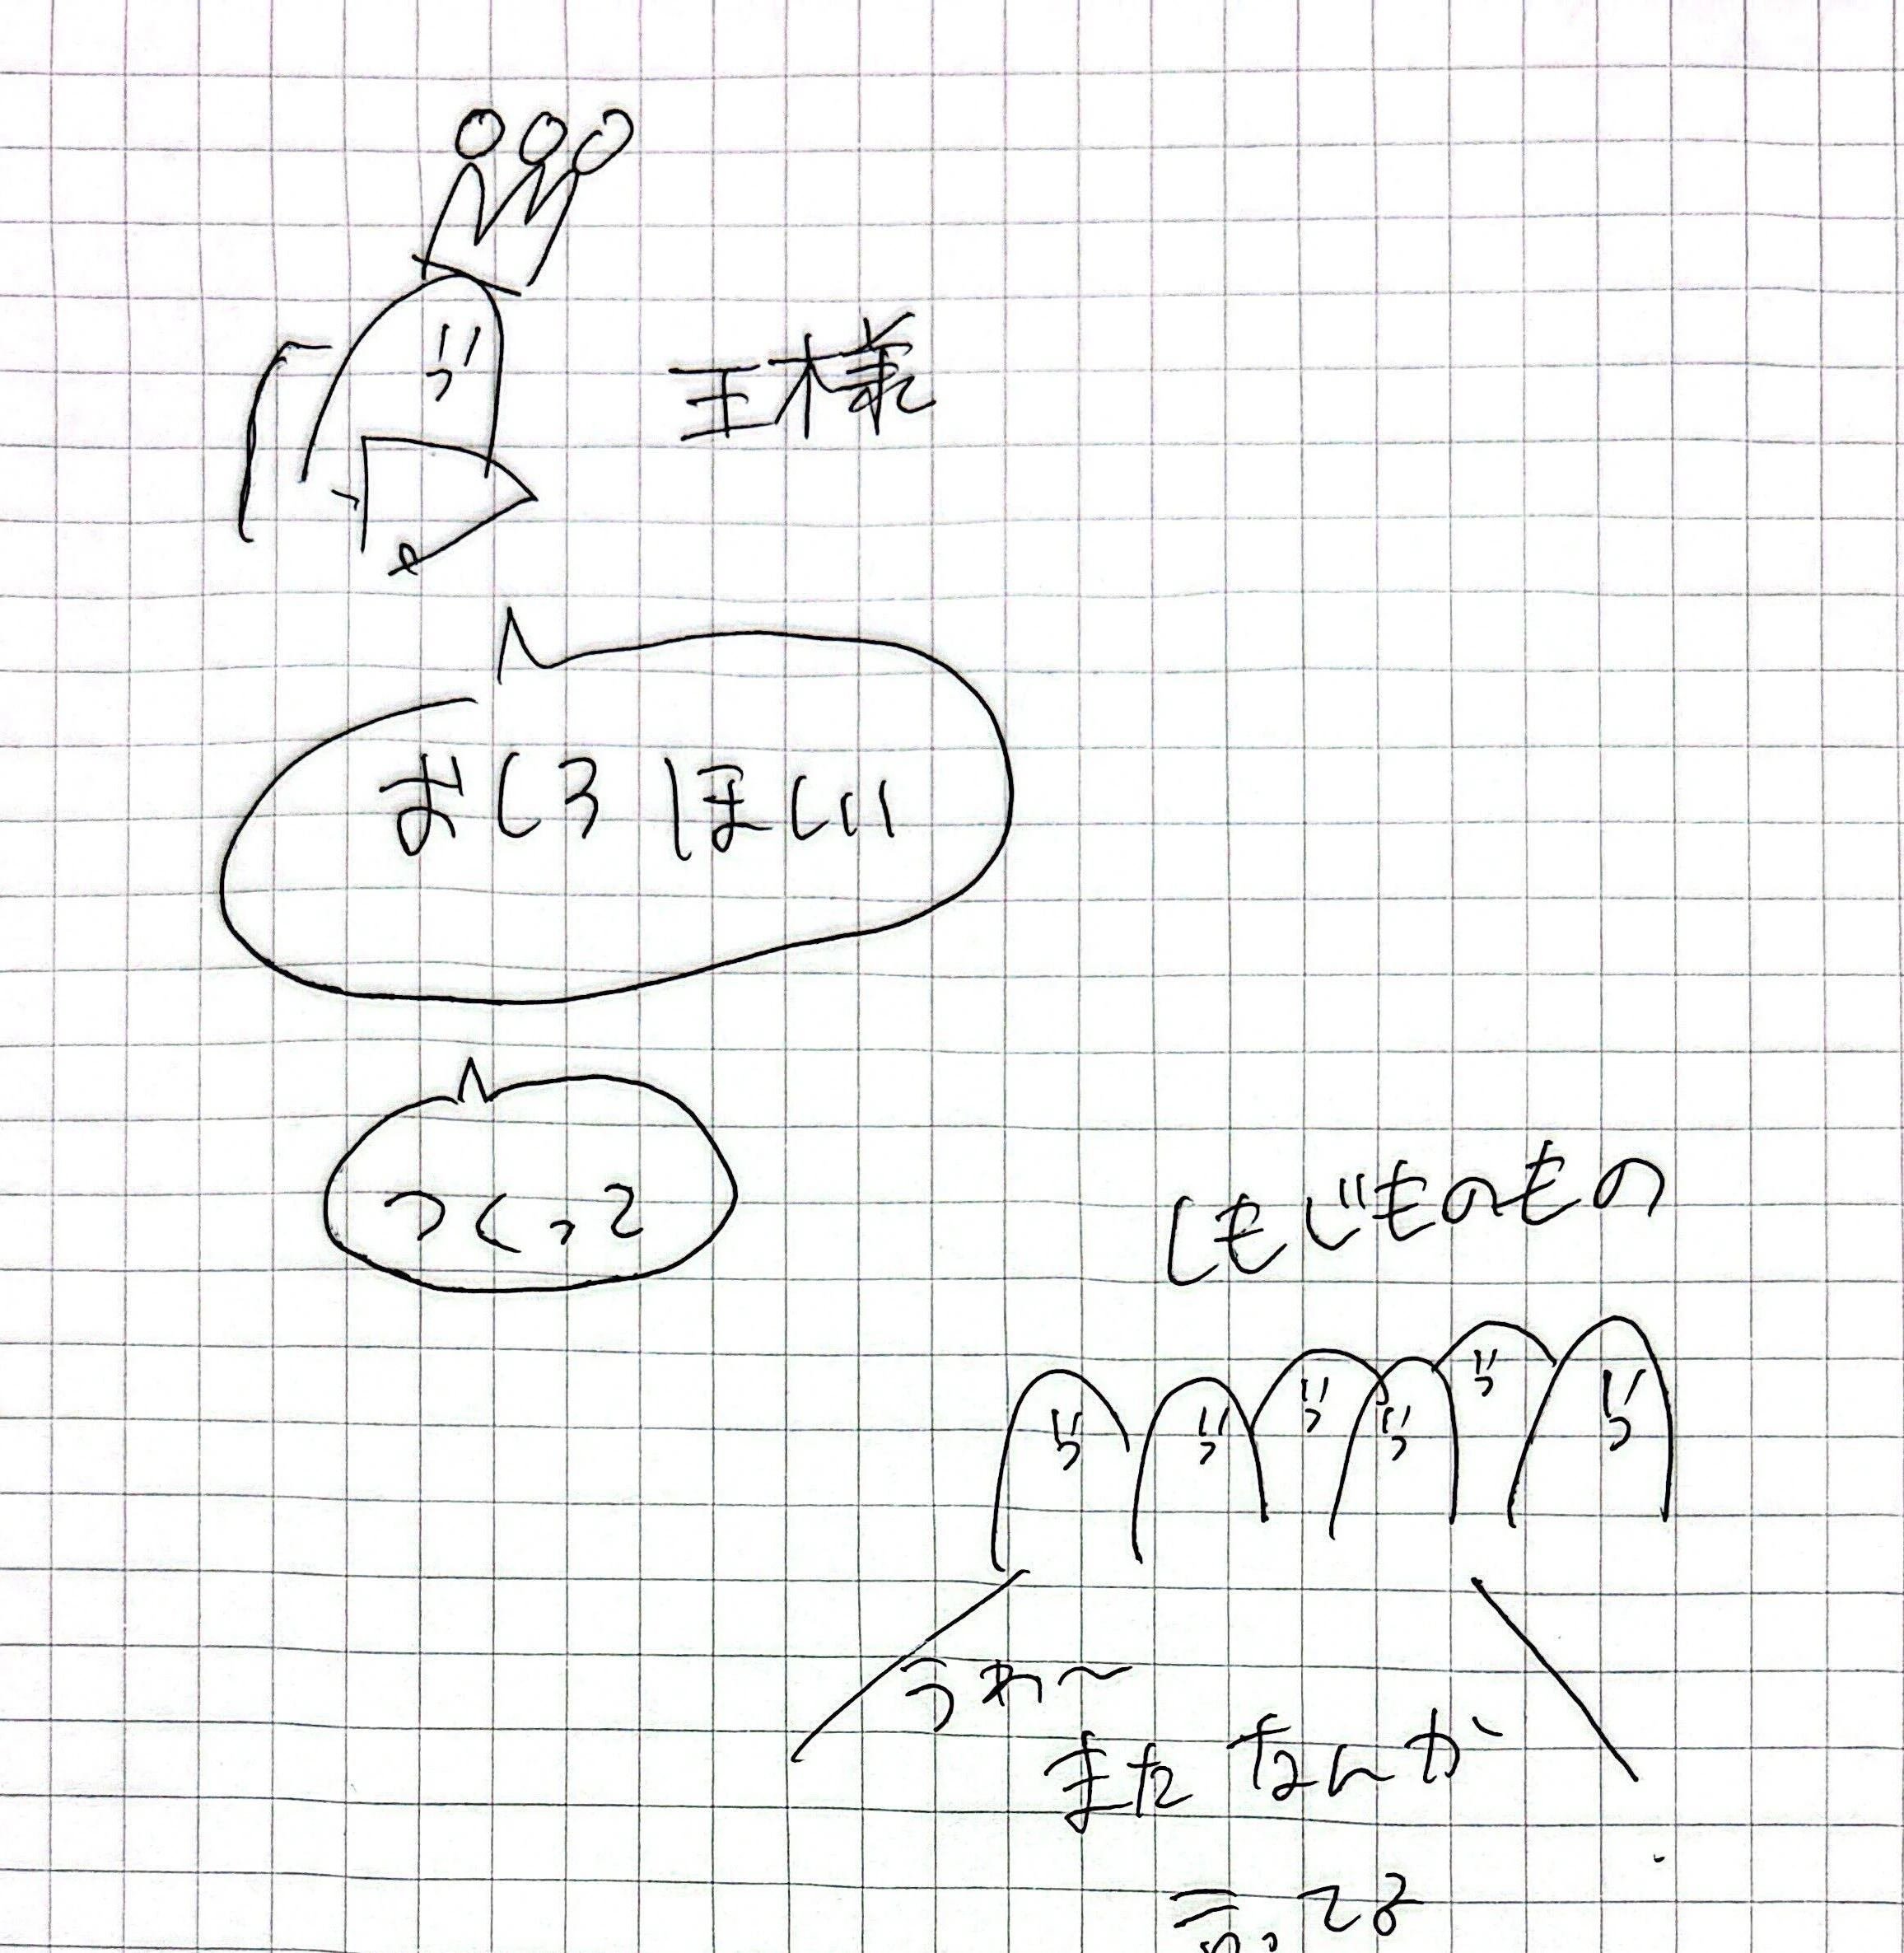 王様
おしろ ほしい
つくって
しもじものもの
うわ〜
また なんか
言ってる